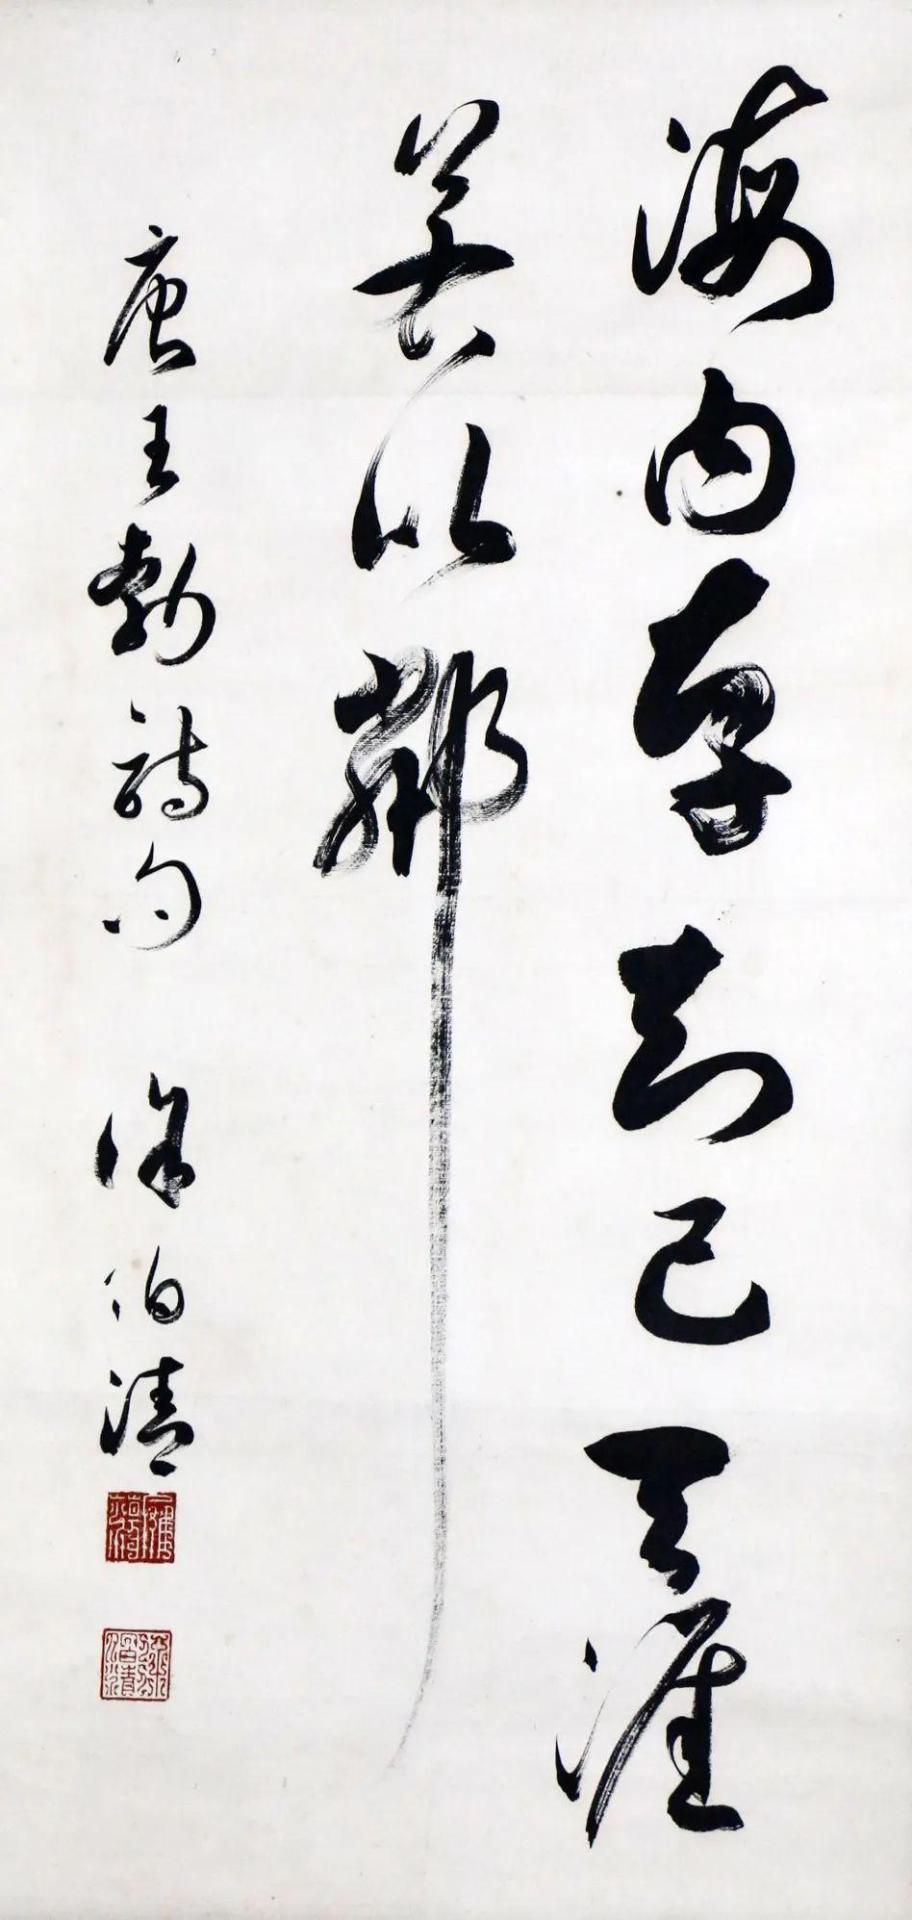 海内存知己天涯
若比鄰
唐王勃詩句 徐伯清